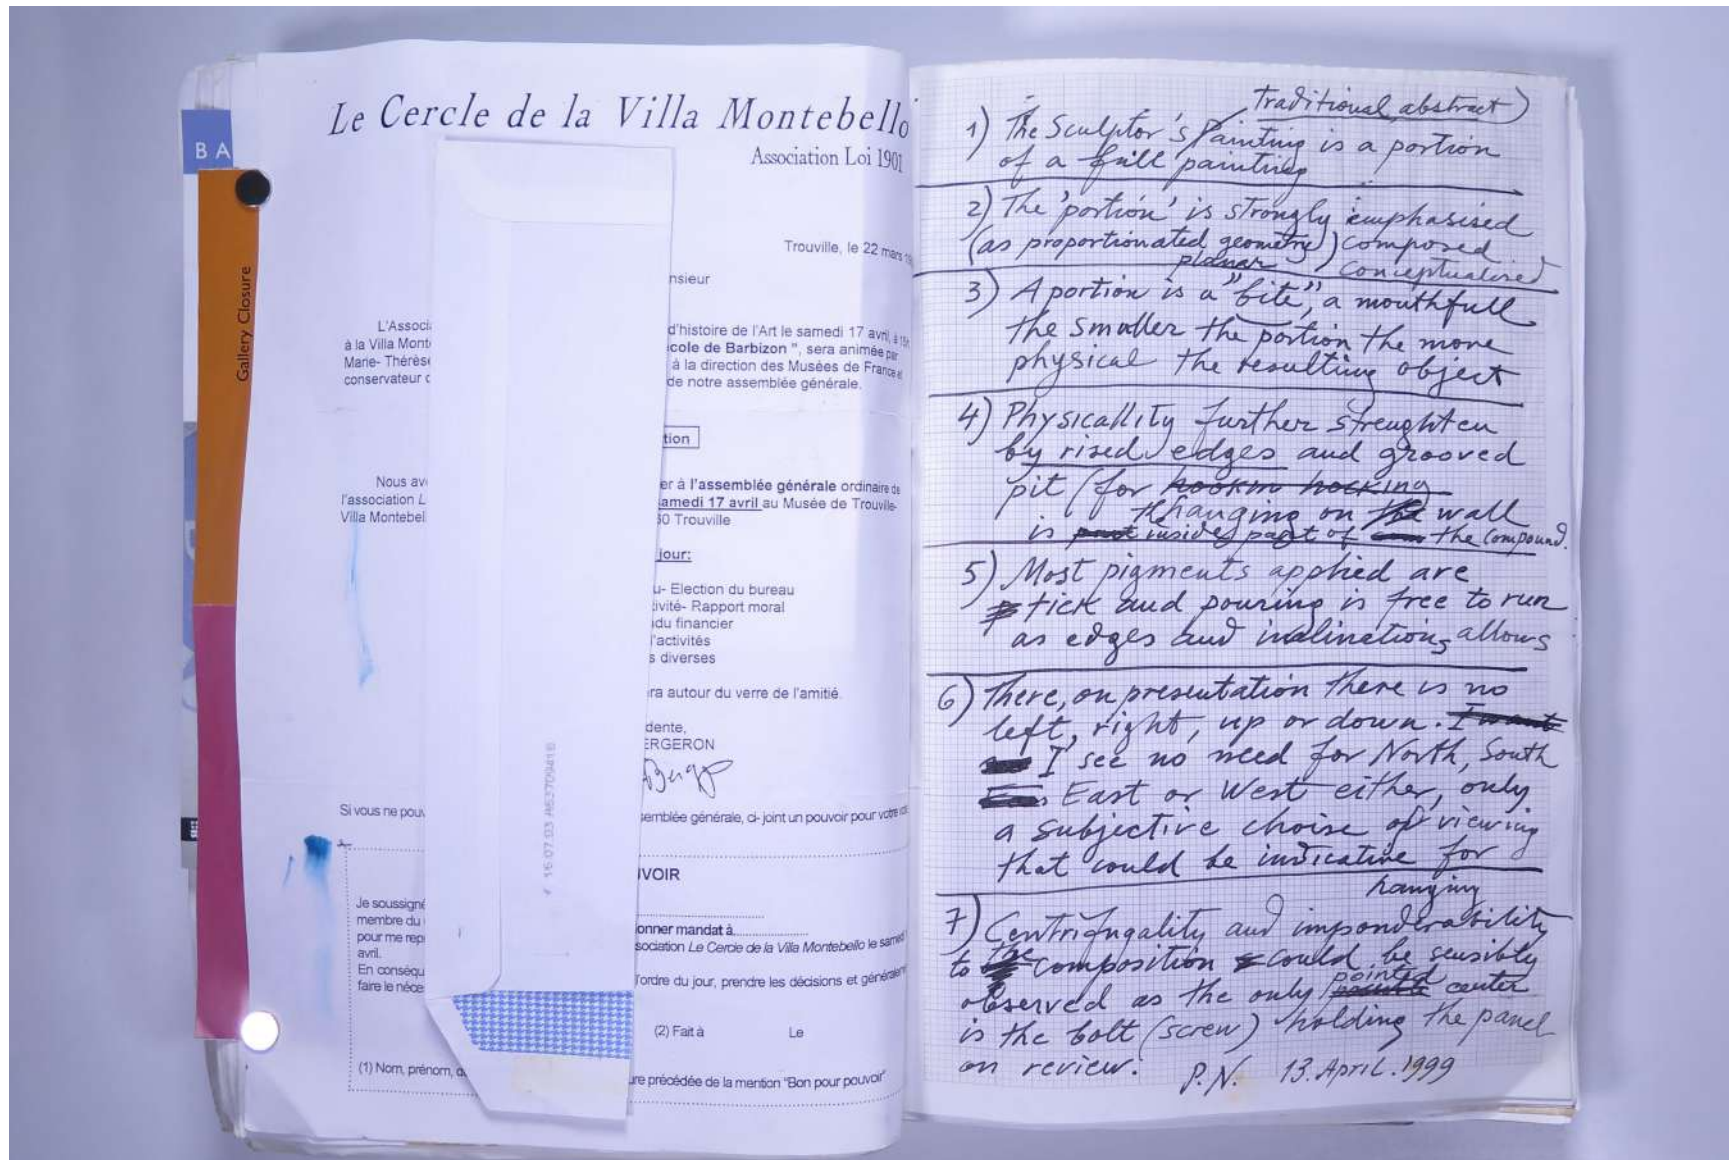 BA
Gallery Closure
Le Cercle de la Villa Montebello
Association Loi 1901
Trouville, le 22 mars
nsieur
L'Associ
d'histoire de l'Art le samedi 17 avril, à 15h
à la Villa Mont
cole de Barbizon ", sera animée par
Marie- Thérèse
à la direction des Musées de France et
conservateur d
de notre assemblée générale.
tion
Nous av
er à l'assemblée générale ordinaire de
l'association L
samedi 17 avril au Musée de Trouville-
Villa Montebel
60 Trouville
jour:
u- Election du bureau
ivité- Rapport moral
du financier
l'activités
s diverses
ra autour du verre de l'amitié.
dente,
ERGERON
Si vous ne pouv
semblée générale, ci-joint un pouvoir pour votre
16:07:03 A63709416
IVOIR
Je soussigné
membre du
onner mandat à
pour me rep
sociation Le Cercle de la Villa Montebello le samedi
avril.
En conséqu
l'ordre du jour, prendre les décisions et généralement
faire le néce
(2) Fait à Le
(1) Nom, prénom, a
ure précédée de la mention "Bon pour pouvoir"
traditional, abstract)
1) The Sculptor's Painting is a portion
of a full painting
2) The 'portion' is strongly emphasised
(as proportionated geometry) composed
planar conceptualised
3) A portion is a "bite", a mouthfull
the smaller the portion the more
physical the resulting object
4) Physicallity further strenghten
by rised edges and grooved
pit (for hookin hocking
hanging on the wall
is part inside part of the compound.
5) Most pigments applied are
tick and pouring is free to run
as edges and inclinations allows
6) There, on presentation there is no
left, right, up or down. I want
I see no need for North, South
East or West either, only
a subjective choise of viewing
that could be indicative for
hanging
7) Centrifugality and imponderability
to the composition could be sensibly
observed as the only pointed center
is the bolt (screw) holding the panel
on review.
P.N. 13.April.1999